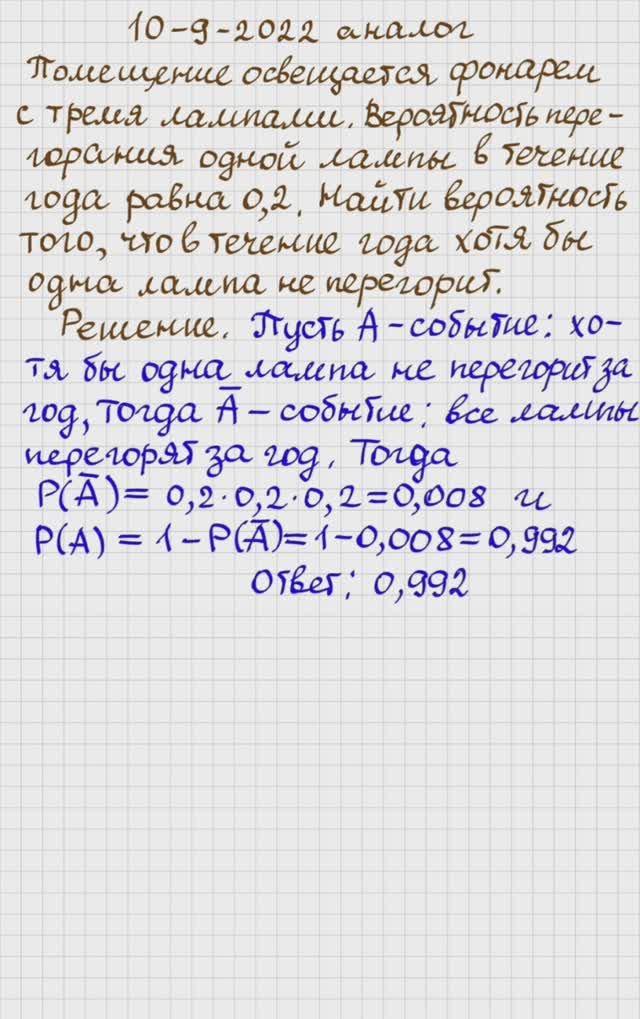 10-9-2022 аналог
Помещение освещается фонарем
с тремя лампами. Вероятность пере-
горания одной лампы в течение
года равна 0,2. Найти вероятность
того, что в течение года хотя бы
одна лампа не перегорит.
Решение. Пусть A - событие: хо-
тя бы одна лампа не перегорит за
год, тогда Ā - событие: все лампы
перегорят за год. Тогда
P(Ā) = 0,2·0,2·0,2=0,008 и
P(A) = 1-P(Ā)=1-0,008=0,992
Ответ: 0,992